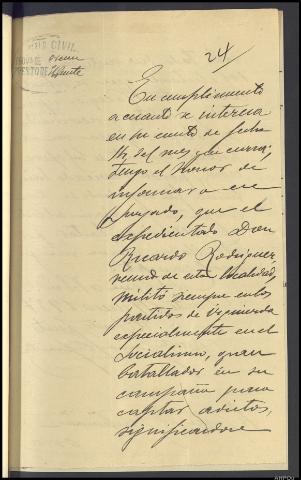 CIVIL
24
En cumplimiento
a cuanto se interesa
en su escrito de fecha
14, del mes que cursa;
tengo el honor de
informar a ese
Juzgado, que el
expedientado Don
Ricardo Rodriguez,
vecino de esta localidad,
militó siempre en los
partidos de izquierda
especialmente en el
socialismo, gran
batallador en su
campaña para
captar adictos,
significandose
AHPOU